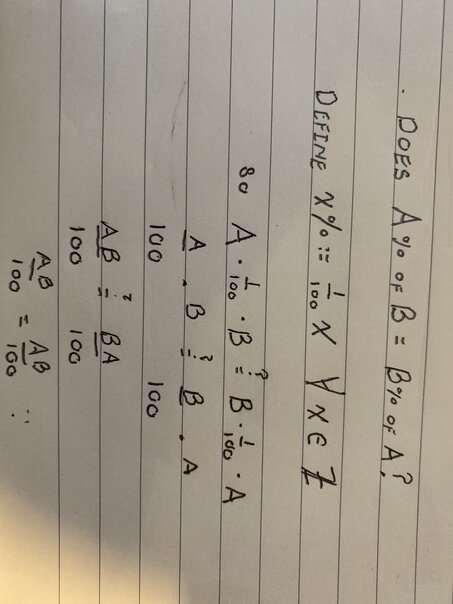 . DOES A% OF B = B% OF A?
DEFINE X% := 1/100 X ∀ X ∈ ℤ
SO A · 1/100 · B ?= B · 1/100 · A
A/100 · B ?= B/100 · A
AB/100 ?= BA/100
AB/100 = AB/100 ∵